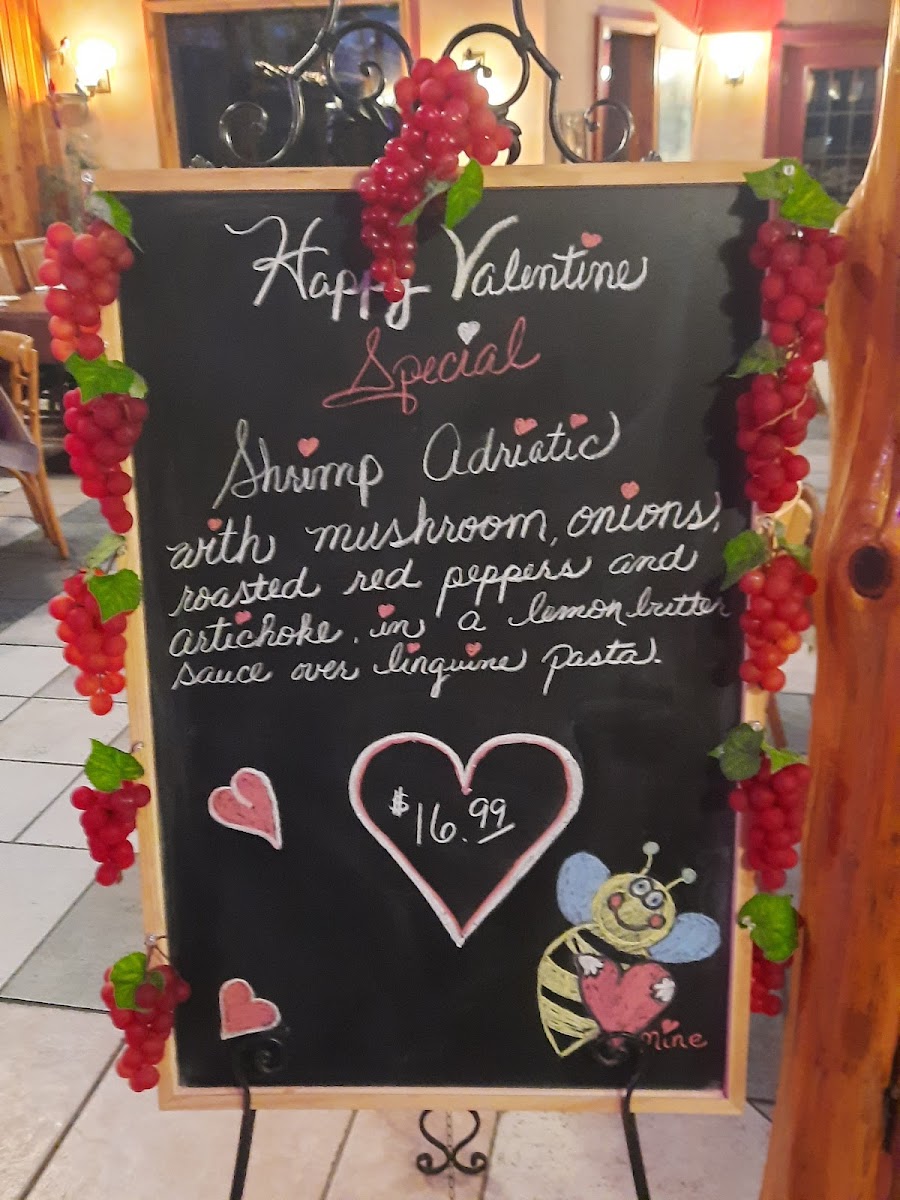 Happy Valentine
Special
Shrimp Adriatic
with mushroom, onions,
roasted red peppers and
artichoke, in a lemon butter
sauce over linguine pasta.
$16.99
mine